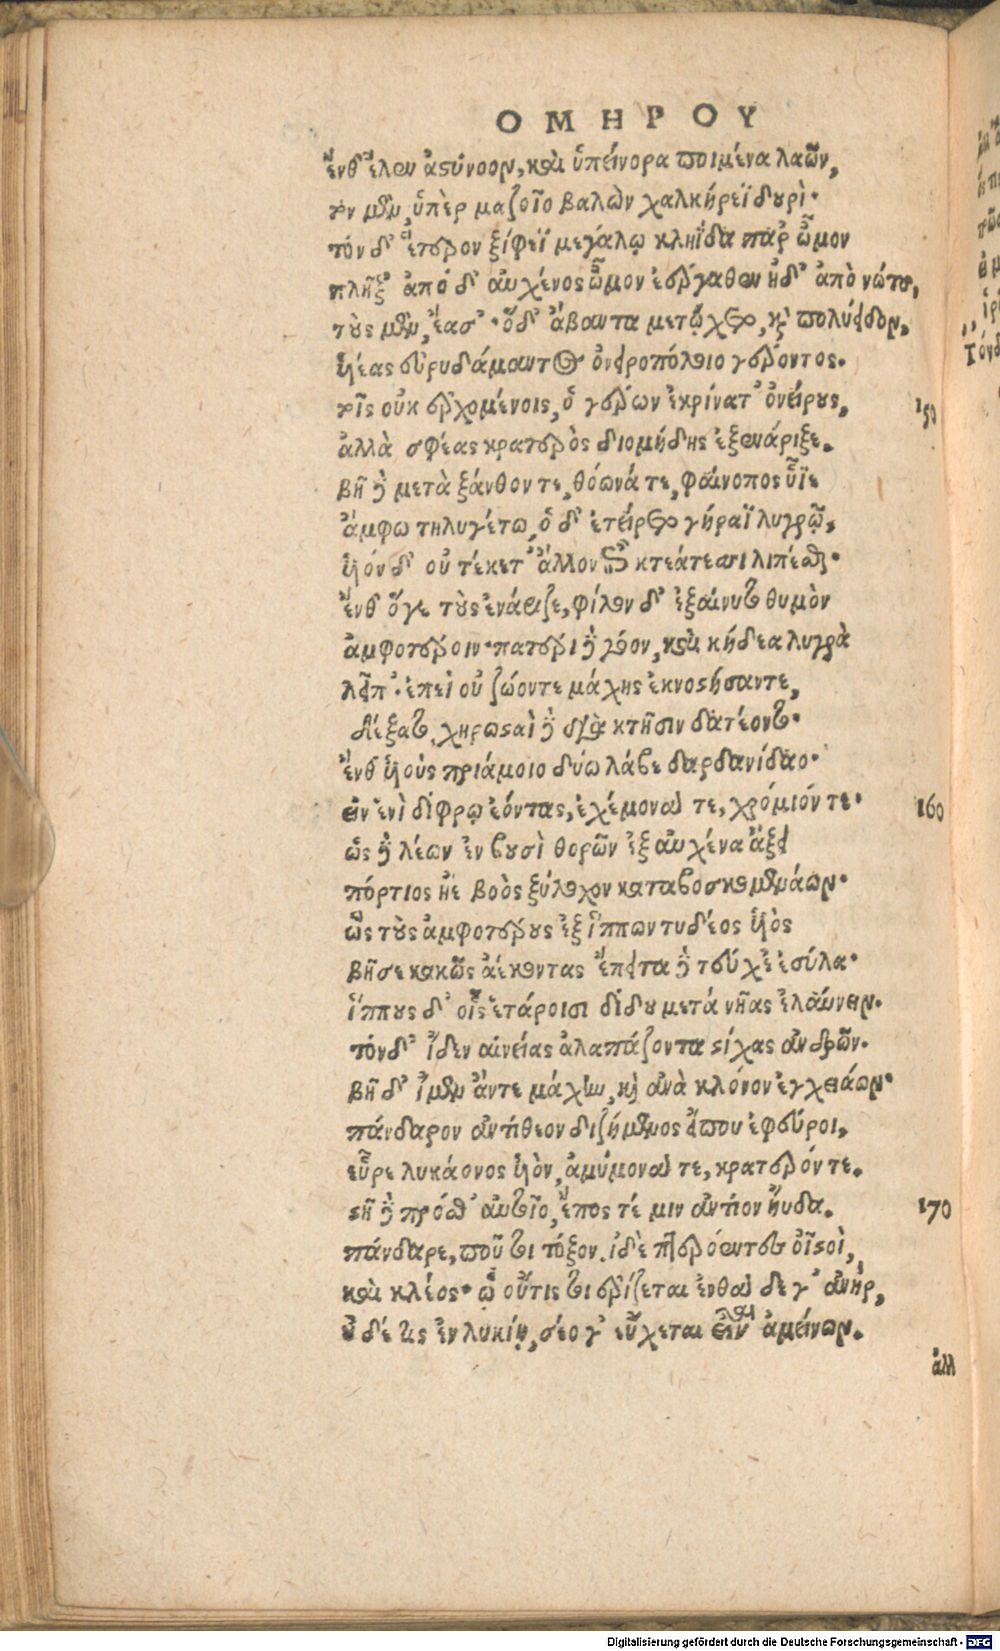 ΟΜΗΡΟΥ
ἔνθ' ἕλεν ἀστύνοον, καὶ ὑπείνορα ποιμένα λαῶν,
τὸν μὲν, ὑπὲρ μαζοῖο βαλὼν χαλκήρεϊ δουρὶ·
τόν δ' ἕτερον ξίφεϊ μεγάλῳ κληῗδα παρ' ὦμον
πλῆξ' ἀπό δ' αὐχένος ὦμον ἐέργαθεν ἠδ' ἀπὸ νώτου,
τοὺς μὲν, ἔασ'· ὅδ' ἄβαντα μετῴχετο, καὶ πολύειδον,
ὑιέας εὐρυδάμαντος ὀνειροπόλοιο γέροντος.
τοῖς οὐκ ἐρχομένοις, ὁ γέρων ἐκρίνατ' ὀνείρους,
150
ἀλλὰ σφέας κρατερὸς διομήδης ἐξενάριξε.
βῆ δὲ μετὰ ξάνθον τε, θόωνά τε, φαίνοπος ὗϊε
ἄμφω τηλυγέτω, ὁ δ' ἐτείρετο γήραϊ λυγρῷ,
ὑιόν δ' οὐ τέκετ' ἄλλον ἐπὶ κτεάτεσσι λιπέσθαι·
ἔνθ' ὅγε τοὺς ἐνάριζε, φίλον δ' ἐξαίνυτο θυμὸν
ἀμφοτέροιν· πατέρι δὲ γόον, καὶ κήδεα λυγρὰ
λεῖπ'· ἐπεὶ οὐ ζώοντε μάχης ἐκνοστήσαντε,
δέξατο, χηρωσταὶ δὲ διὰ κτῆσιν δατέοντο·
ἔνθ' ὑιοὺς πριάμοιο δύω λάβε δαρδανίδαο·
εἰν ἑνὶ δίφρῳ ἐόντας, ἐχέμονά τε, χρόμιόν τε·
160
ὡς δὲ λέων ἐν βουσὶ θορῶν ἐξ αὐχένα ἄξει
πόρτιος ἠὲ βοὸς ξύλοχον καταβοσκομενάων·
ὣς τοὺς ἀμφοτέρους ἐξ ἵππων τυδέος ὑιὸς
βῆσε κακῶς ἀέκοντας ἔπειτα δὲ τεύχε' ἐσύλα·
ἵππους δ' οἷς ἑτάροισι δίδου μετά νῆας ἐλαύνειν.
τόνδ' ἴδεν αἰνείας ἀλαπάζοντα στίχας ἀνδρῶν.
βῆ δ' ἴμεν ἄντε μάχην, καὶ ἀνὰ κλόνον ἐγχειάων·
πάνδαρον ἀντίθεον διζήμενος εἴπου ἐφεύροι,
εὗρε λυκάονος ὑιὸν, ἀμύμονά τε, κρατερόν τε.
στῆ δὲ πρόσθ' αὐτοῖο, ἔπος τέ μιν ἀντίον ηὔδα.
170
πάνδαρε, ποῦ τοι τόξον, ἰδὲ πτερόεντες οἴστοὶ,
καὶ κλέος· ᾧ οὔτις τοι ἐρίζεται ἐνθάδε γ' ἀνὴρ,
οὐδέ τις ἐν λυκίῃ, σέο γ' εὔχεται εἶναι ἀμείνων.
ἀλλ
Digitalisierung gefördert durch die Deutsche Forschungsgemeinschaft - DFG